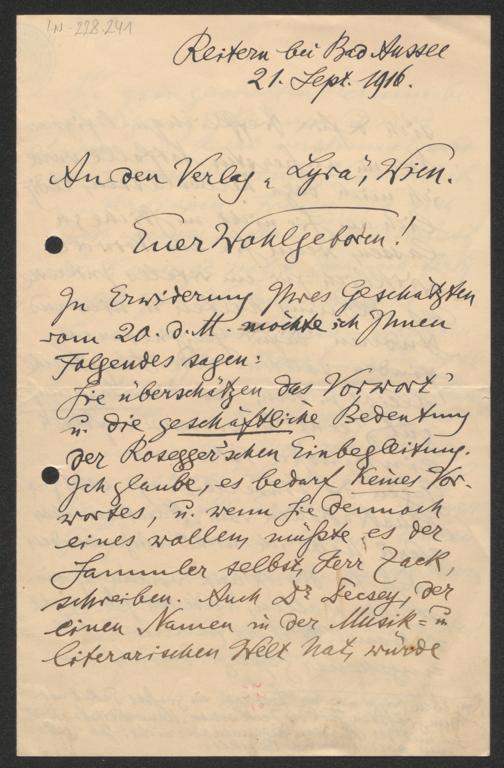 IN-228.241
Reitern bei Bad Aussee
21. Sept. 1916.
An den Verlag „Lyra", Wien.
Euer Wohlgeboren!
In Erwiderung Ihres Geschätzten
vom 20. d. M. möchte ich Ihnen
Folgendes sagen:
Sie überschätzen das Vorwort
u. die geschäftliche Bedeutung
der Rosegger'schen Einbegleitung.
Ich glaube, es bedarf keines Vor-
wortes, u. wenn Sie dennoch
eines wollen, müßte es der
Sammler selbst, Herr Zack,
schreiben. Auch Dr Decsey, der
einen Namen in der Musik- u
literarischen Welt hat, würde